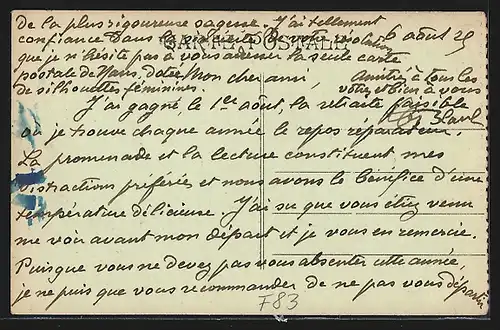 de la plus rigoureuse sagesse. J'ai tellement
confiance dans la de votre résolution
que je n'hésite pas à vous adresser la seule carte
postale de dotée
de silhouettes féminines.
CARTE POSTALE
6 août 25
Mon cher ami,
Amitiés à tous les
vôtres et bien à vous
J'ai gagné, le 1er août, la retraite paisible
où je trouve chaque année le repos réparateur.
La promenade et la lecture constituent mes
distractions préférées et nous avons le bénéfice d'une
température délicieuse. J'ai su que vous étiez venu
me voir avant mon départ et je vous en remercie.
Puisque vous ne devez pas vous absenter cette année,
je ne puis que vous recommander de ne pas vous départir
F83